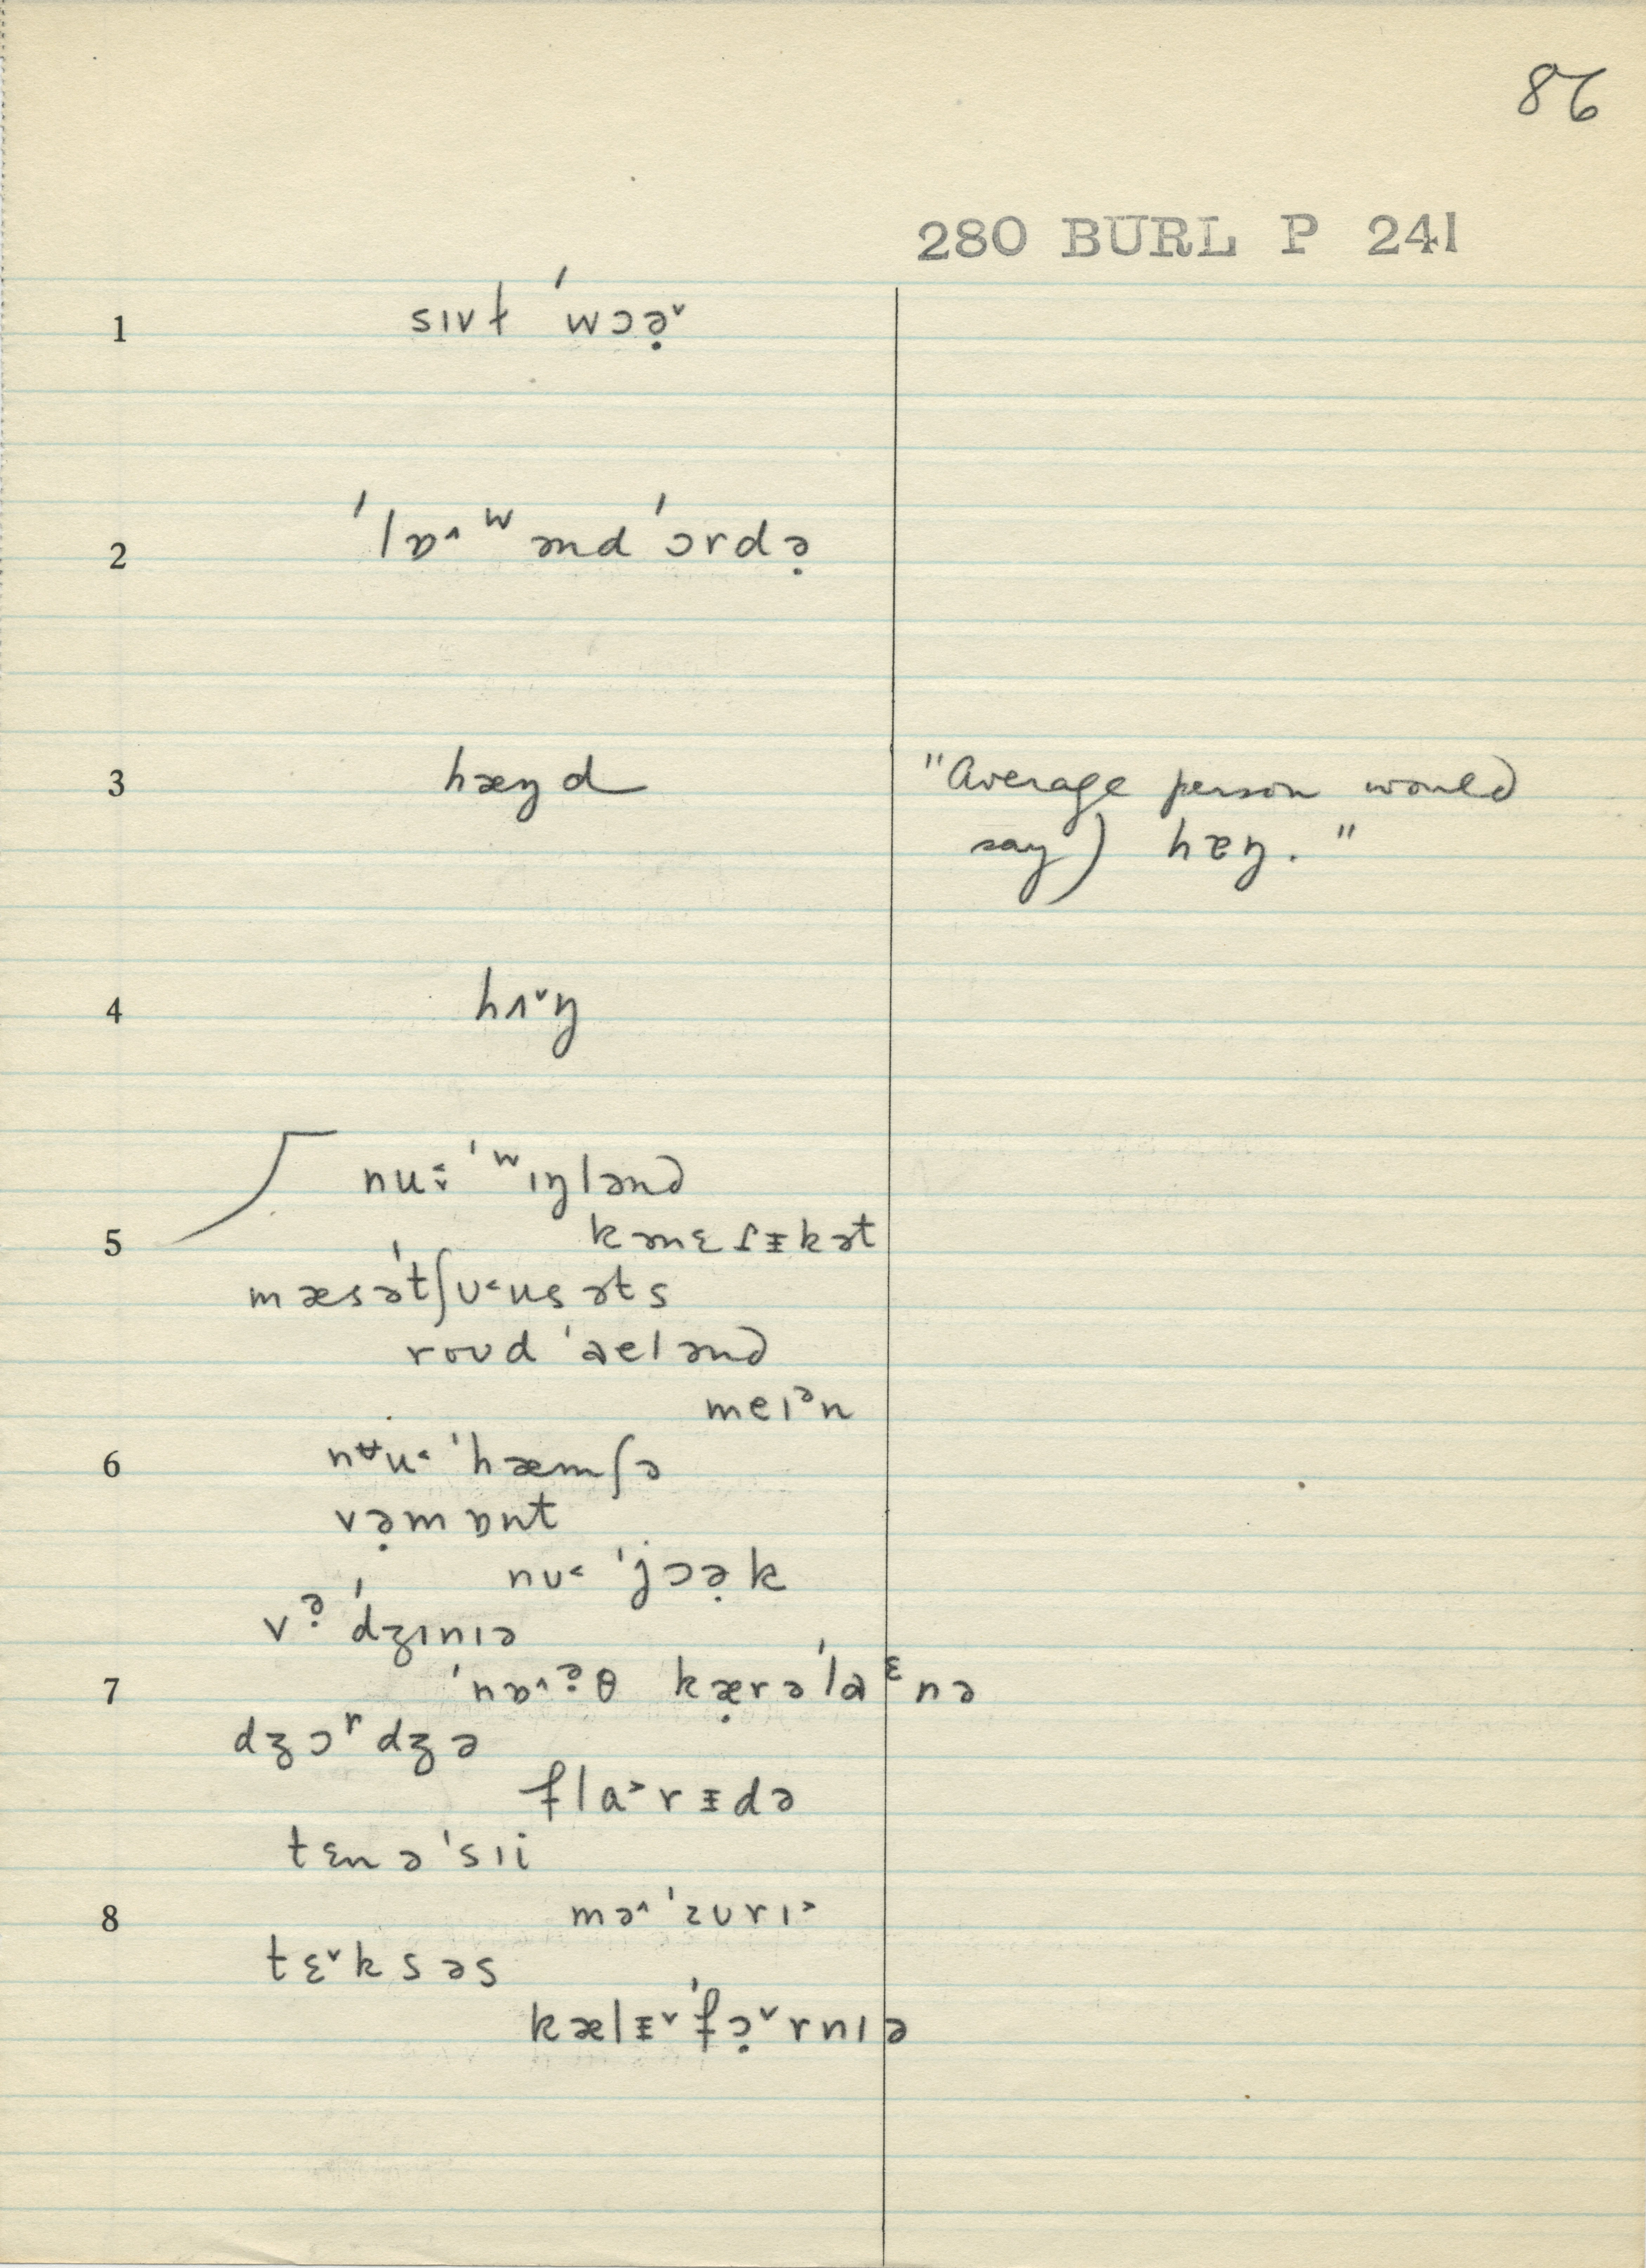 86
280 BURL P 241
1 sɪvɫ ˈwɔə̣˅
2 ˈlɒ˄ʷ ənd ˈɔrdə̣
3 hæŋd "Average person would
say) hæŋ."
4 hʌ˅ŋ
nu:̬˂ ˈʷɪŋlənd
5 kənɛɾᵻkət
mæsəˈtʃʊ˂usəts
roʊd ˈaelənd
meɪᵊn
6 nᵾu˂ ˈhæmʃə
və̣mɒnt
nʊ˂ ˈjɔə̣k
və̣ˈdʒɪnɪə
7 ˈnɒ˄ə̣θ kæ̣rəˈlaᵋnə
dʒɔʳdʒə
fla˃rᵻdə
tɛnəˈsɪi
8 mə˄ˈzʊrɪ˃
tɛ˅ksəs
kælᵻ˅ˈfɔ̣˅rnɪə